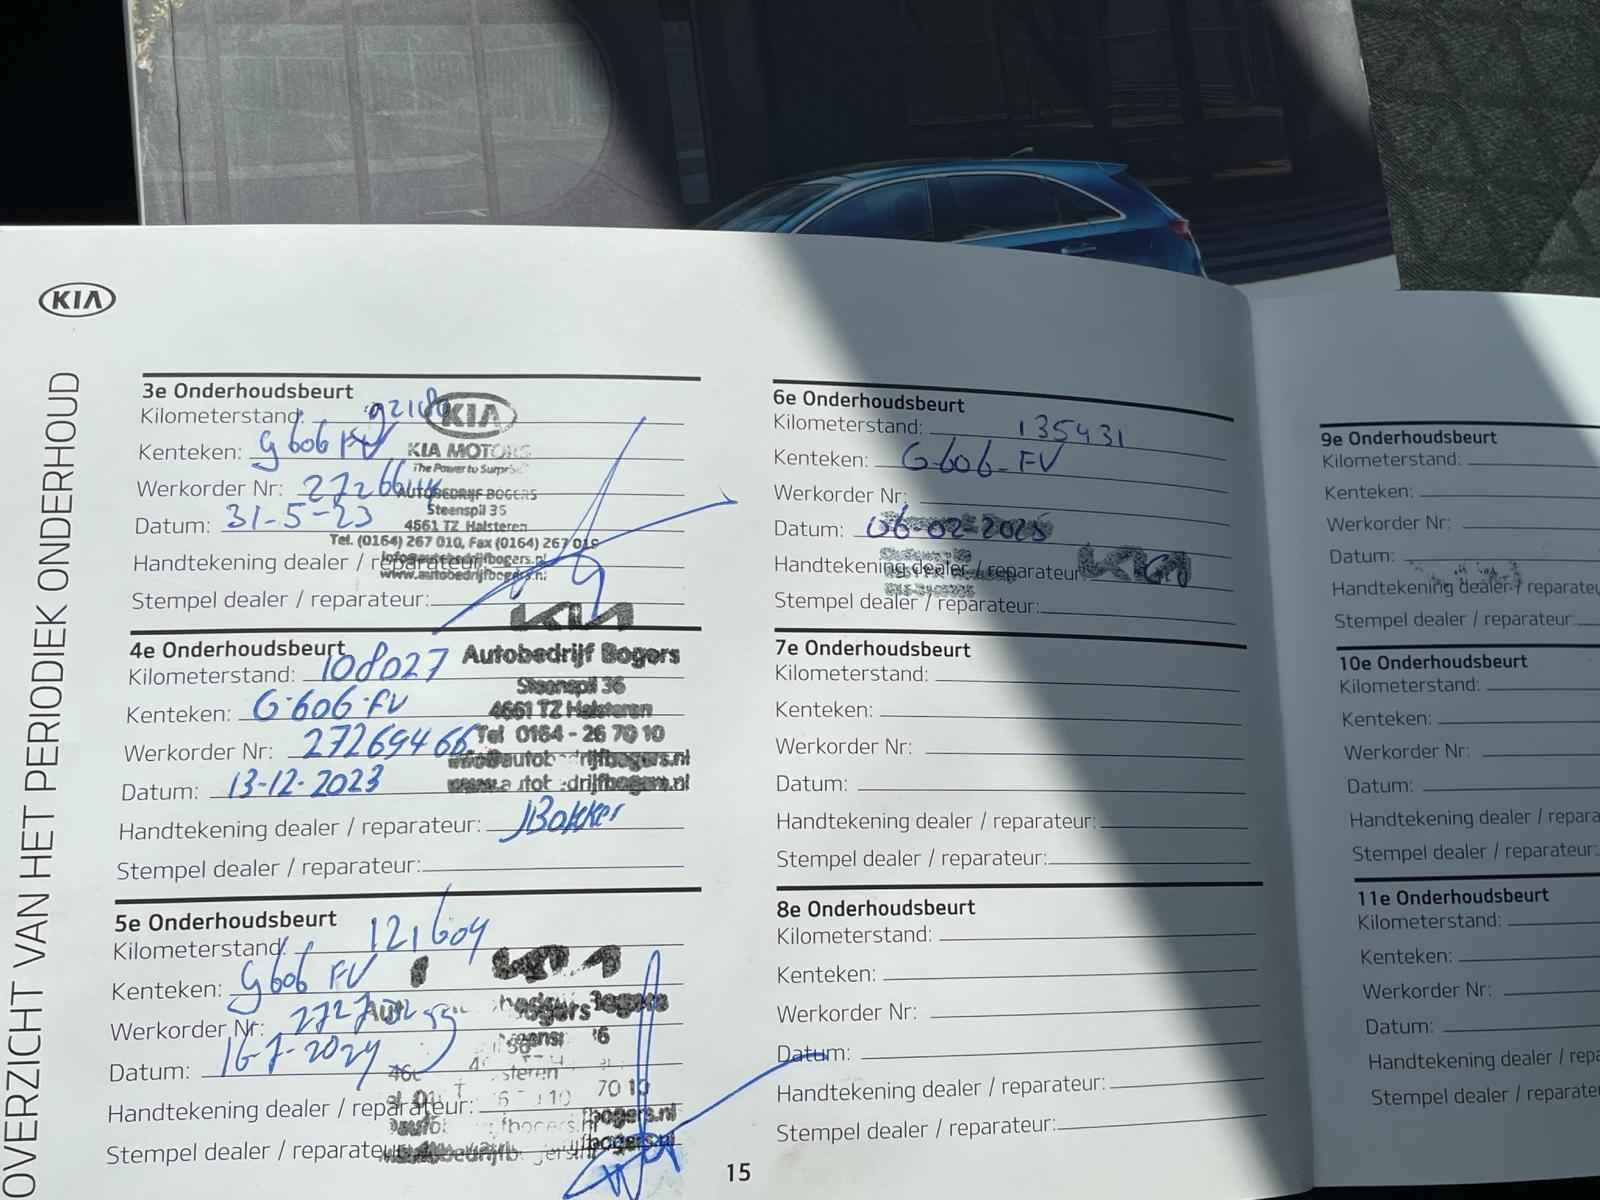 KIA
OVERZICHT VAN HET PERIODIEK ONDERHOUD
3e Onderhoudsbeurt
Kilometerstand: 92180
KIA
Kenteken: G 606 FV
KIA MOTORS
The Power to Surprise
Werkorder Nr:
AUTOBEDRIJF BOGERS
Steenspil 35
Datum: 31-5-23
4661 TZ Halsteren
Tel. (0164) 267 010, Fax (0164) 267 018
Handtekening dealer / reparateur:
info@autobedrijfbogers.nl
www.autobedrijfbogers.nl
Stempel dealer / reparateur:
KIA
4e Onderhoudsbeurt
Kilometerstand: 108027
Autobedrijf Bogers
Steenspil 36
Kenteken: G-606-FV
4661 TZ Halsteren
Werkorder Nr: 27269466
Tel 0164 - 26 70 10
info@autobedrijfbogers.nl
Datum: 13-12-2023
www.autobedrijfbogers.nl
Handtekening dealer / reparateur: JBakker
Stempel dealer / reparateur:
5e Onderhoudsbeurt
Kilometerstand: 121604
Kenteken: G606 FV
Werkorder Nr:
Datum: 16-7-2024
Handtekening dealer / reparateur:
Stempel dealer / reparateur:
6e Onderhoudsbeurt
Kilometerstand: 135431
Kenteken: G-606-FV
Werkorder Nr:
Datum: 06-02-2025
Handtekening dealer / reparateur
KIA
Stempel dealer / reparateur:
7e Onderhoudsbeurt
Kilometerstand:
Kenteken:
Werkorder Nr:
Datum:
Handtekening dealer / reparateur:
Stempel dealer / reparateur:
8e Onderhoudsbeurt
Kilometerstand:
Kenteken:
Werkorder Nr:
Datum:
Handtekening dealer / reparateur:
Stempel dealer / reparateur:
15
9e Onderhoudsbeurt
Kilometerstand:
Kenteken:
Werkorder Nr:
Datum:
Handtekening dealer / reparateu
Stempel dealer / reparateur:
10e Onderhoudsbeurt
Kilometerstand:
Kenteken:
Werkorder Nr:
Datum:
Handtekening dealer / repara
Stempel dealer / reparateur:
11e Onderhoudsbeurt
Kilometerstand:
Kenteken:
Werkorder Nr:
Datum:
Handtekening dealer / repa
Stempel dealer / reparate